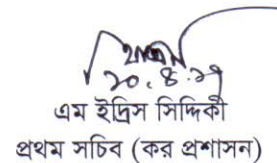 ২০.৪.২৭
এম ইদ্রিস সিদ্দিকী
প্রথম সচিব (কর প্রশাসন)